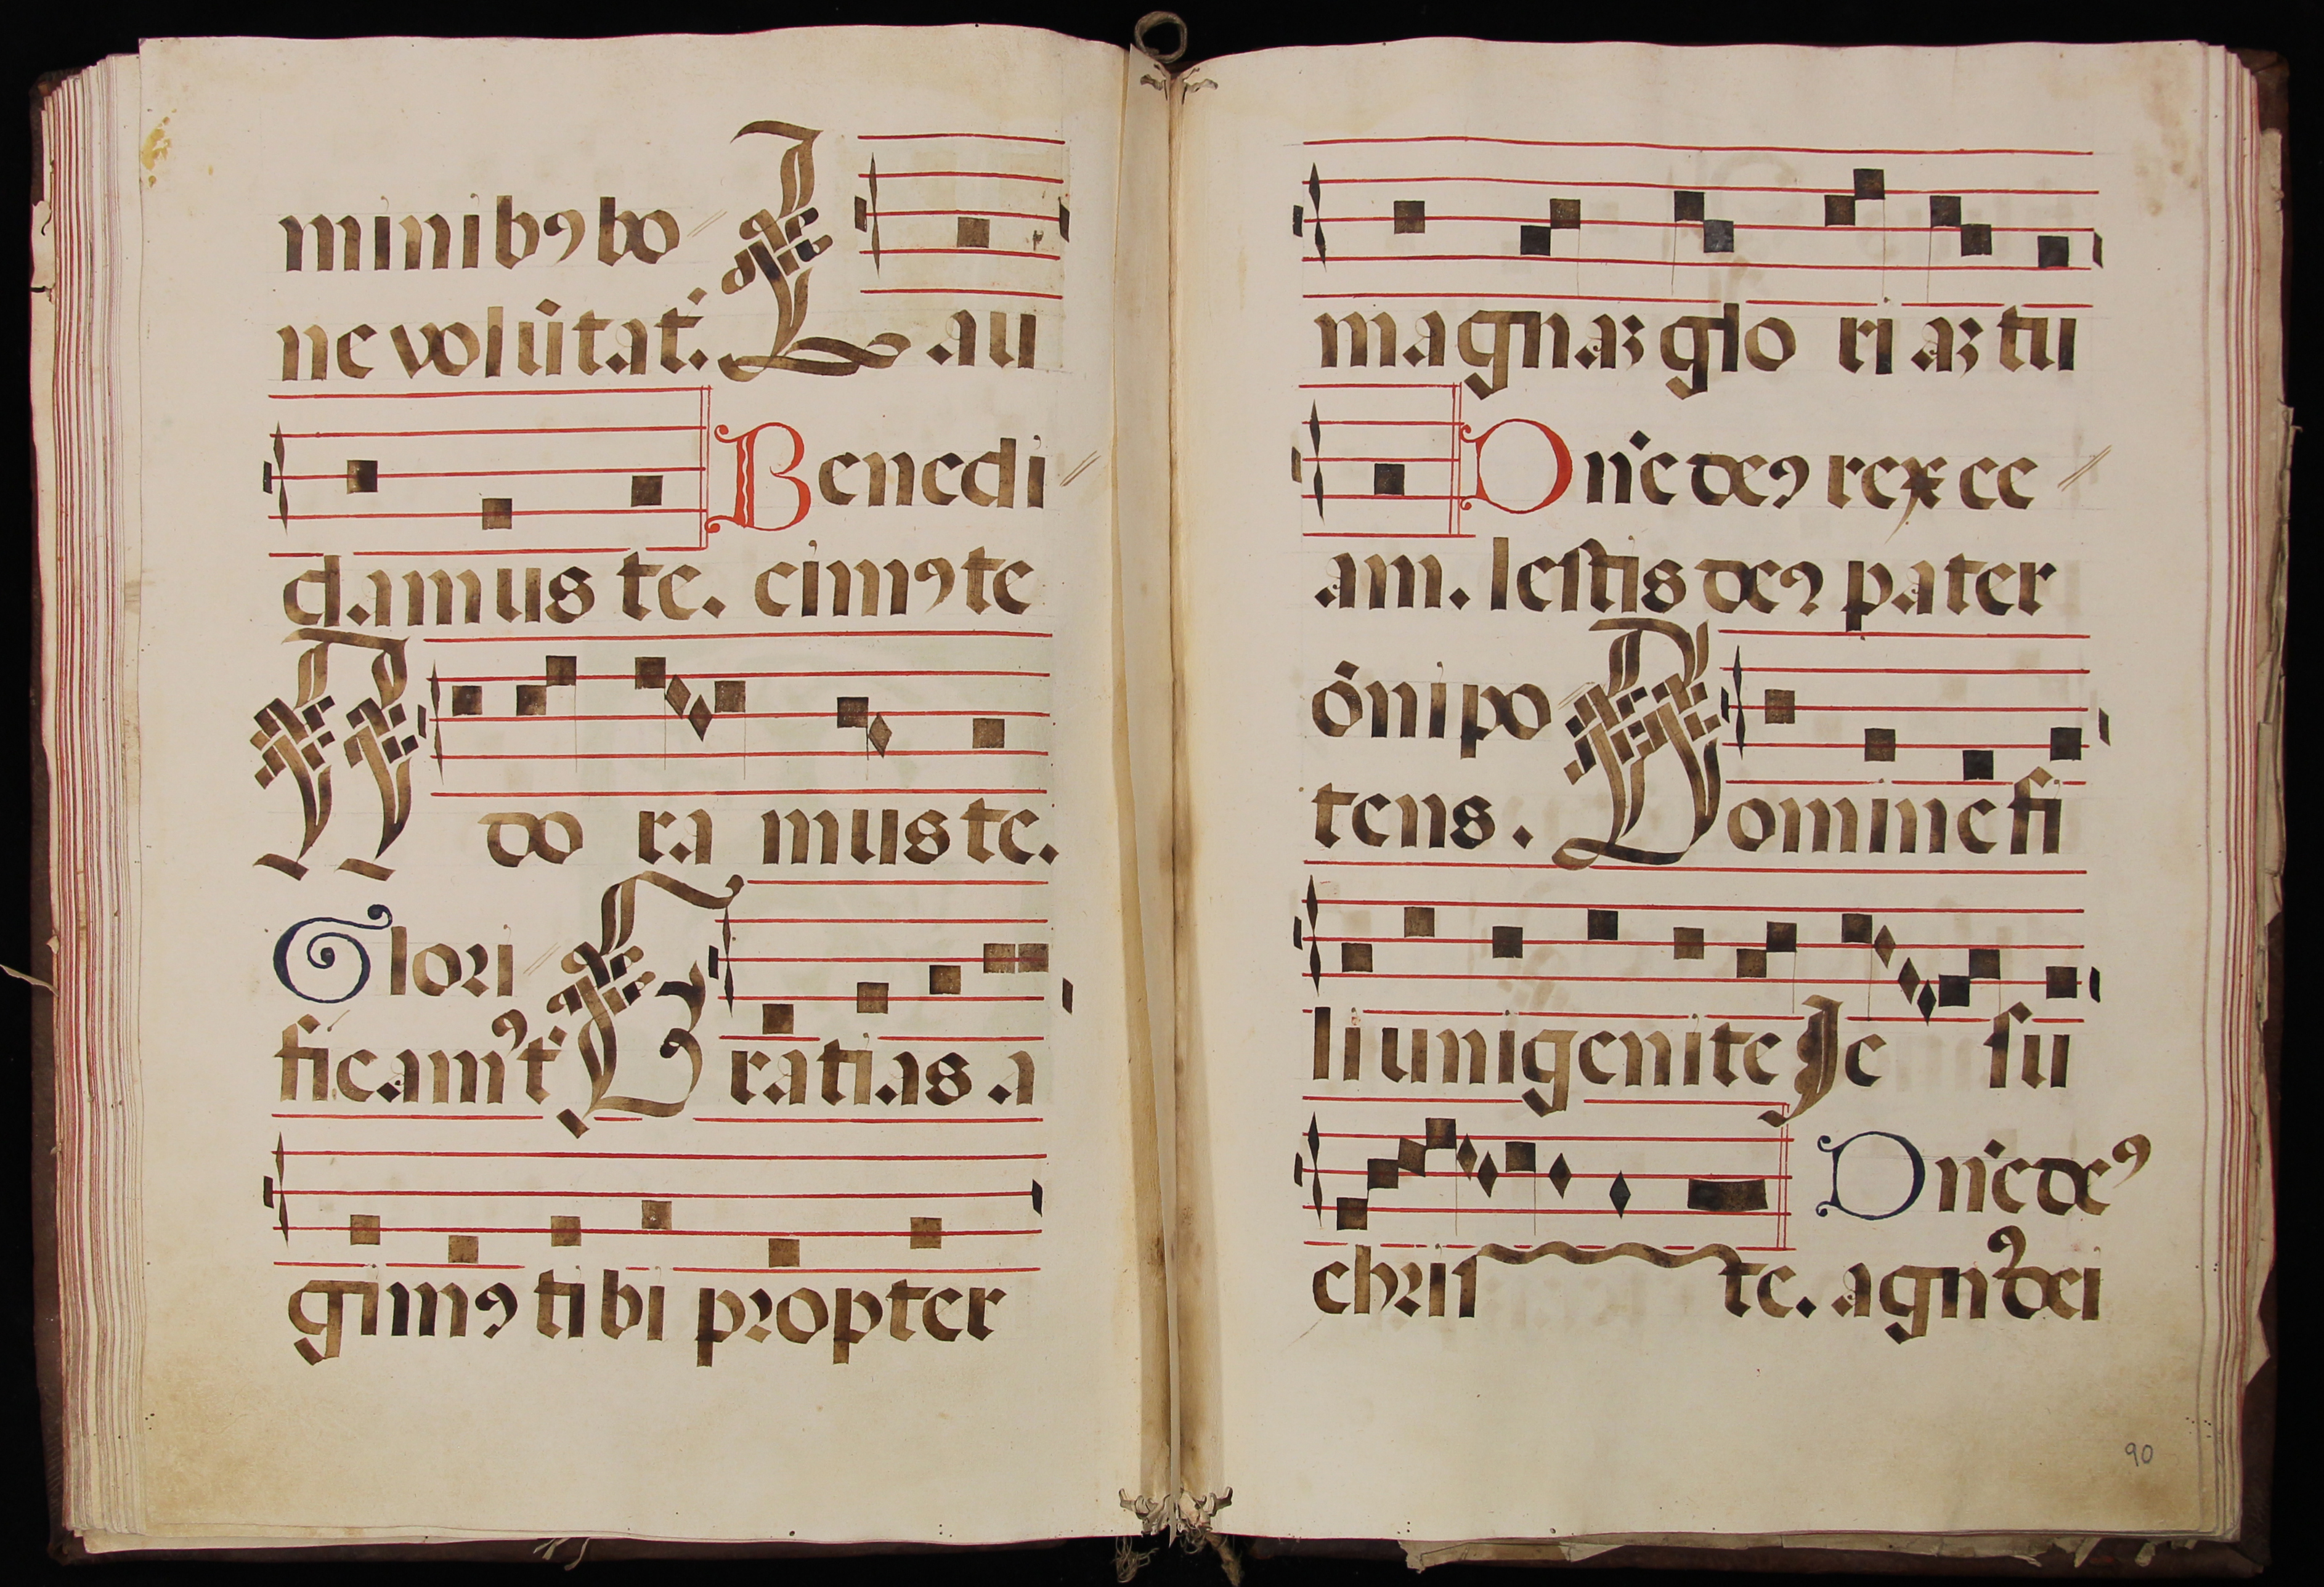 minibꝯ bo
ne volūtat. Lau
Benedi
damus te. cimꝯ te
Ado ra mus te.
Glori
ficamꝯ t Gratias a
gimꝯ tibi propter
magnaꝫ glo ri aꝫ tu
Dn̄e deꝯ rex ce
am. lestis deꝯ pater
ōnipo
tens. Domine fi
li unigenite Je su
Dn̄e deꝯ
chris te. agnꝯ dei
90